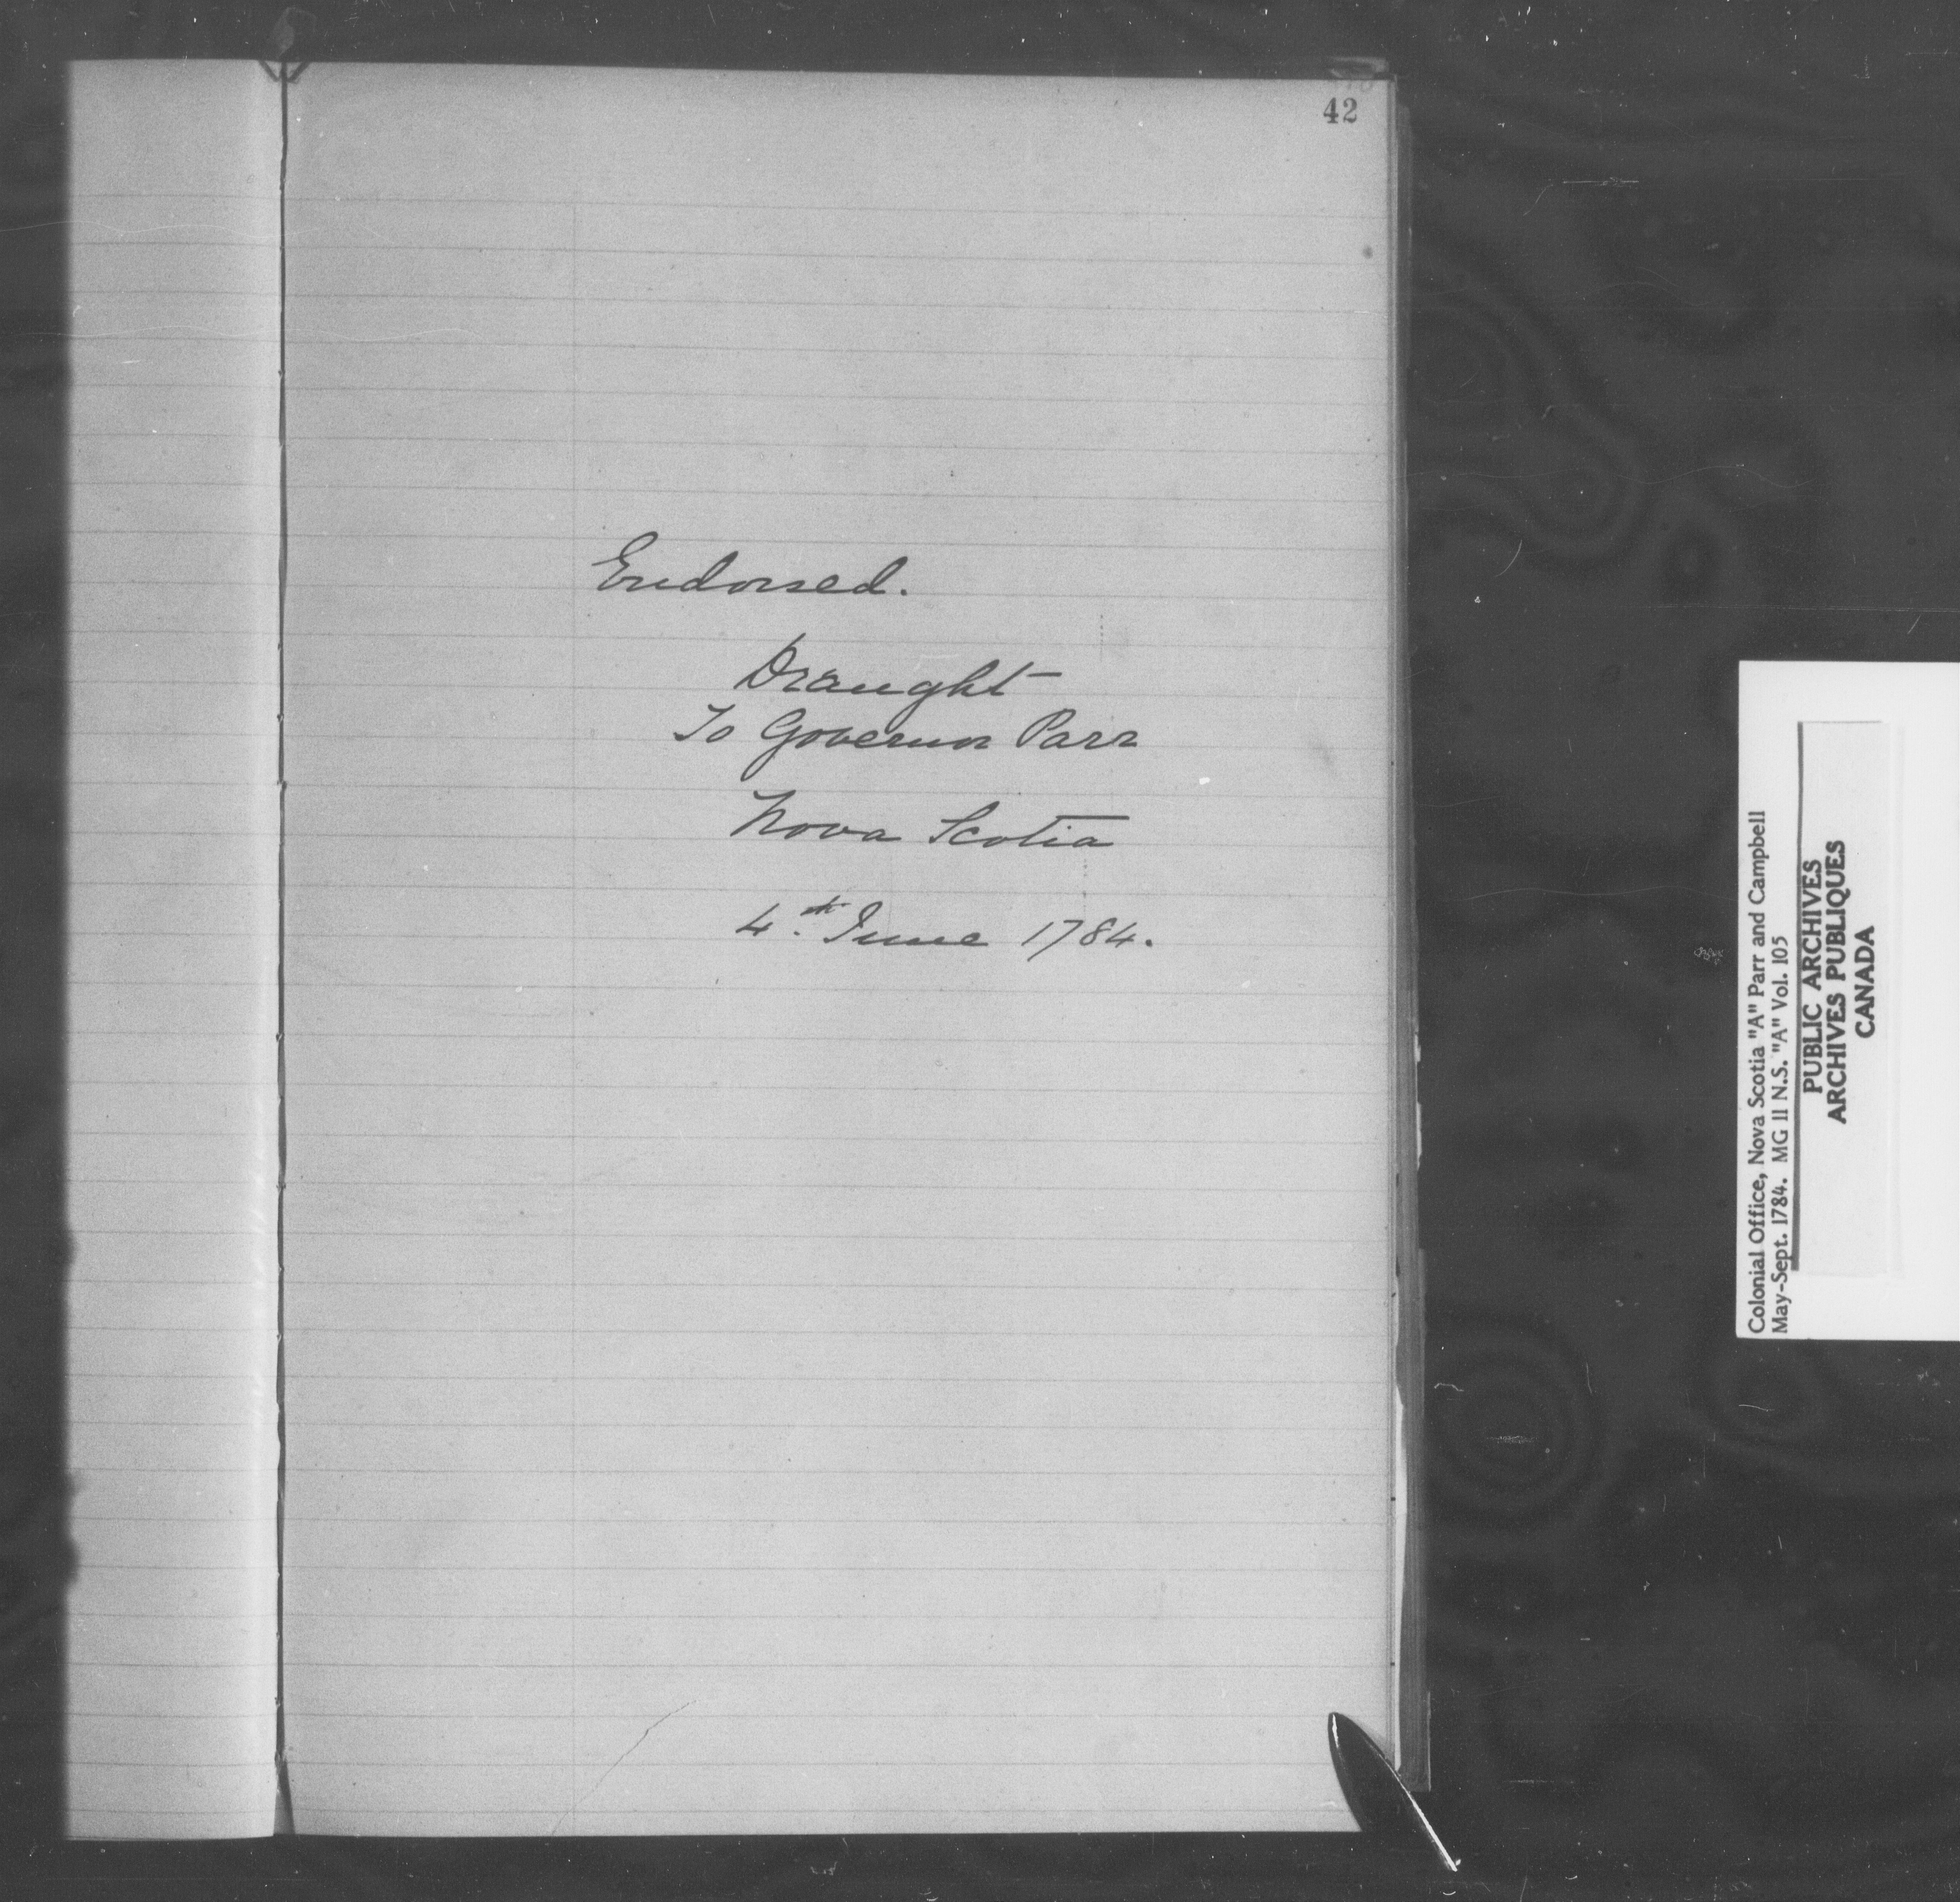 42
Endorsed.
Draught
To Governor Parr
Nova Scotia
4th. June 1784.
Colonial Office, Nova Scotia "A" Parr and Campbell
May-Sept. 1784. MG 11 N.S. "A" Vol. 105
PUBLIC ARCHIVES
ARCHIVES PUBLIQUES
CANADA